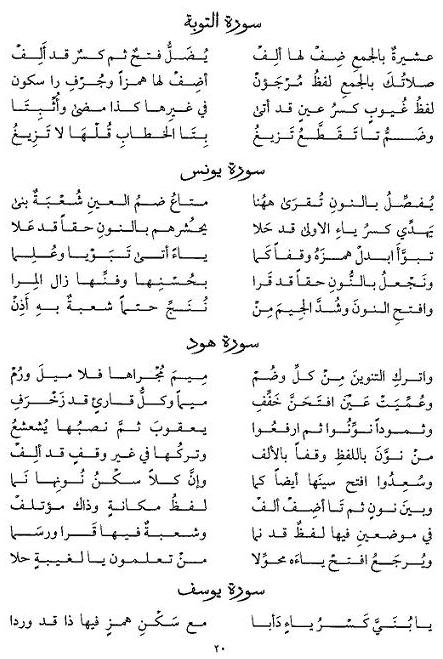 سورة التوبة
عشيرةٌ بالجمعِ ضِفْ لها ألِفْ يُضَلُّ فتحٌ ثم كسرٌ قد أَلِفْ
صلاتُكَ بالجمعِ لفظُ مُرجَؤنْ أضِفْ لها همزاً وجُرْفٍ را سكون
لفظُ غُيوبٍ كسرُ عينٍ قد أتىٰ في غيرِها كذا مضىٰ وأُثبِتَا
وضَمُّ تا تَقَطَّعَ تَزيغُ بِتَا الخطابِ قُلْهَا لا تَزِيغُ
سورة يونس
يُفصِّلُ بالنونِ تُقرَىٰ ههُنا متاعُ ضمُ العينِ شُعْبَةٌ بنىٰ
يَهِدِّي كسرُ ياءِ الاولىٰ قد حَلا يحشرهم بالنون حقاً قد عَلا
تبوَّأَ ابدلْ همزَهُ وقفاً كما ياءً أتىٰ تَبَوَّيا وعُلِما
ونجعَلُ بالنُّونِ حقاً قد قَرا بحُسْنِها وفنِّها زال المِرا
وافتحِ النونَ وشُدَّ الجيمَ مِنْ نُنَجِّ حتماً شعبةٌ به أَذِنْ
سورة هود
واتركِ التنوينَ مِنْ كلٍّ وضُمْ مِيمَ مُجْراها فلا ميلَ ورُمْ
وعُمِّيَتْ عَيْنَ افتَحَنَّ خَفِّفِ ميماً وكلُّ قارئٍ قد زَخْرَفِ
وثموداً نوِّنُوا ثم ارفعُوا يعقوبَ ثمَّ نصبُها يُشعشعُ
من نوَّن باللفظِ وقفاً بالألف وتركُها في غيرِ وقفٍ قد أُلِفْ
وسُعِدُوا افتح سينَها أيضاً كما وإنَّ كلاً سكْنُ نُونِها نَما
وبينَ نونٍ ثم تَا أضِفْ ألفْ لفظُ مكانةٍ وذاك مؤتلفْ
في موضعين فيها لفظٌ قد نما وشعبةٌ فيها قَرا ورسَما
ويُرجَعُ افتحْ ياءَه محوِّلا منْ تعلمون يا لغيبةٍ حلا
سورة يوسف
يا بُنَيَّ كَسْرُ ياءٍ دَأَبا مع سَكْنِ همزٍ فيها ذا قد وردا
٢٠